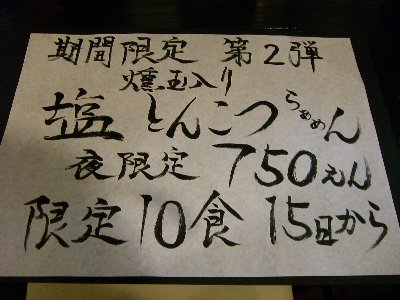 期間限定 第2弾
燻玉入り
塩とんこつらぁめん
夜限定 750えん
限定10食 15日から